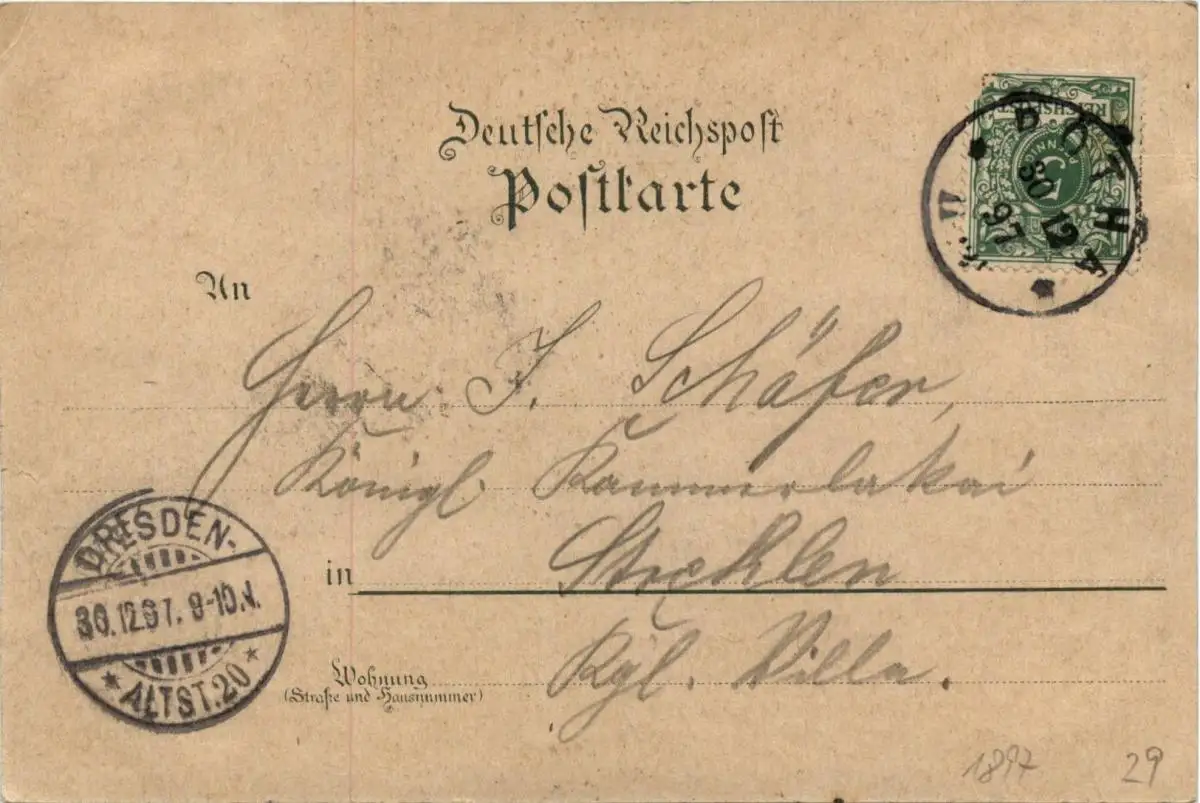 Deutsche Reichspost
Postkarte
REICHSPOST
5
PFENNIG
RÖTHA
30
12
97
An
Herrn J. Schäfer,
Königl. Kammerlakai
in Strehlen
Kgl. Villa.
Wohnung
(Straße und Hausnummer)
DRESDEN-
30.12.97. 9-10.V.
ALTST.20
1897
29